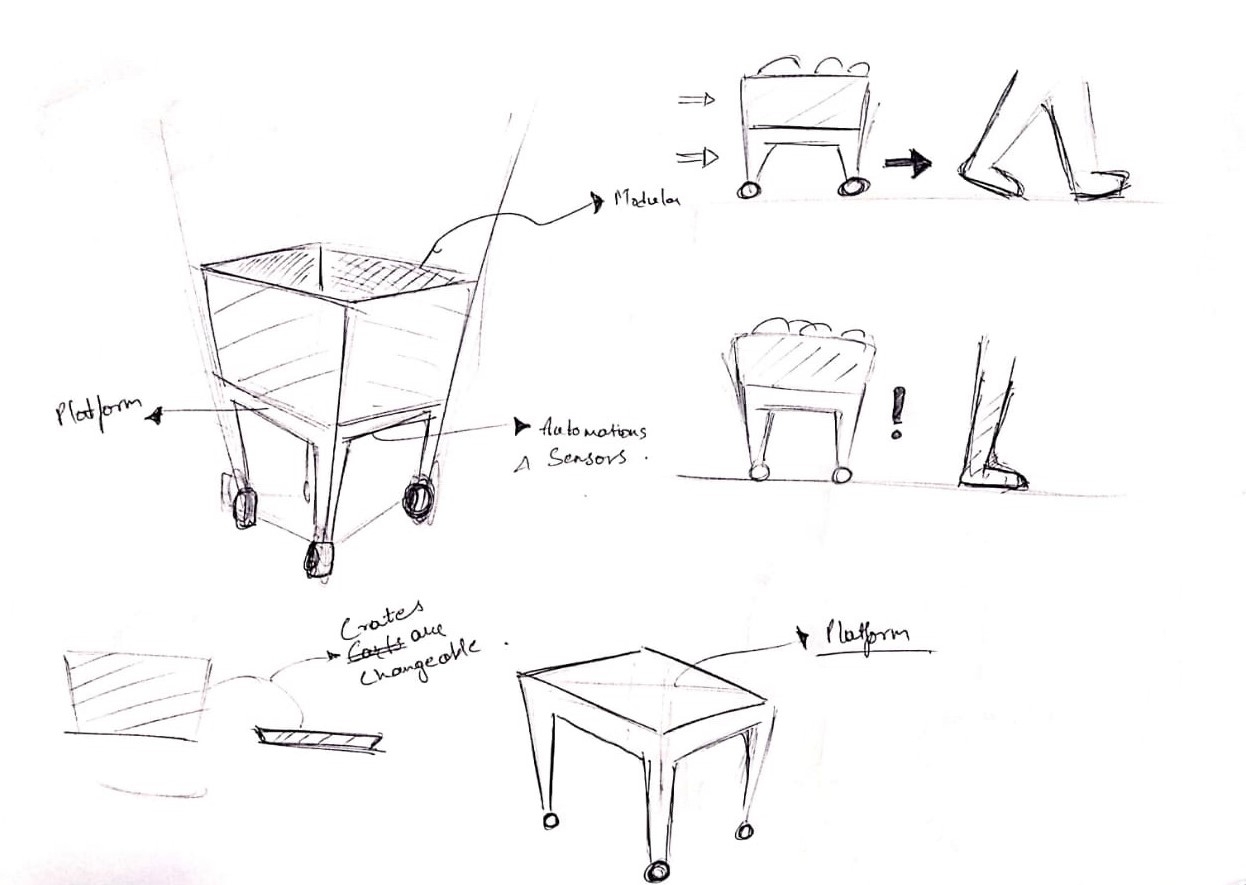 Modular
Platform
Automations
& Sensors.
Crates
Carts are
changeable.
Platform